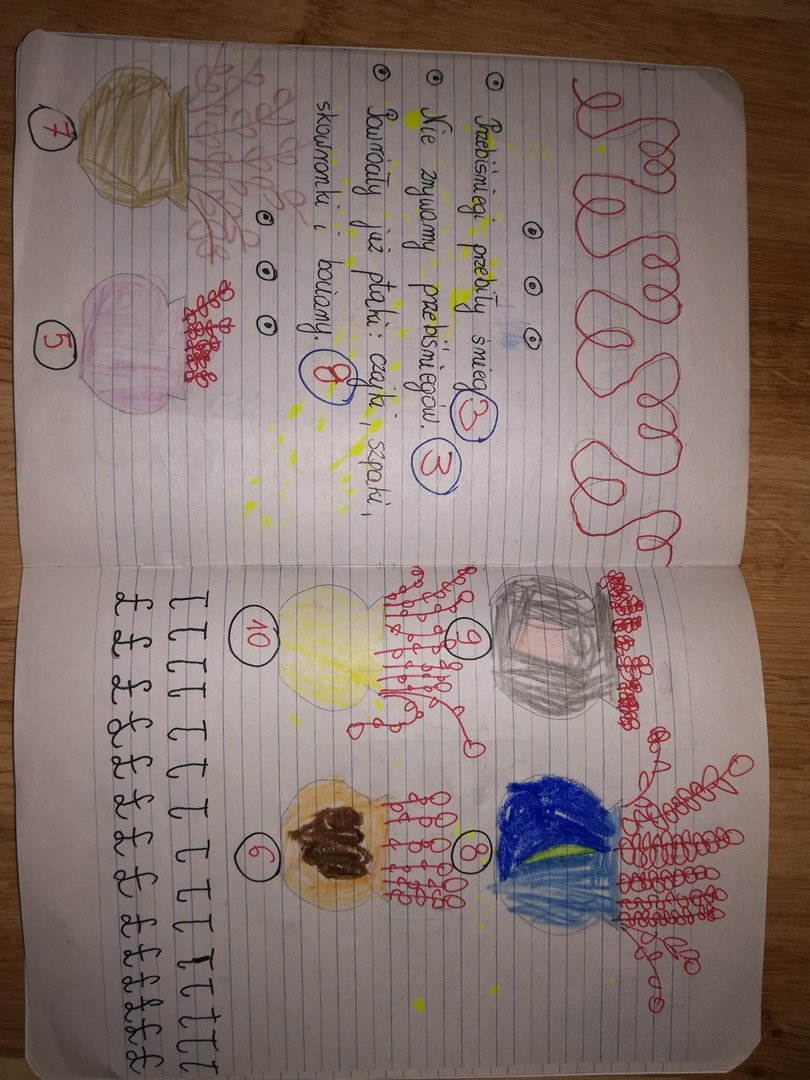 Przebiśniegi przebiły śnieg. 3
Nie zrywamy przebiśniegów. 3
Powróciły już ptaki: czajki, szpaki,
skowronki i bociany. 8
7 5
9 8
10 6